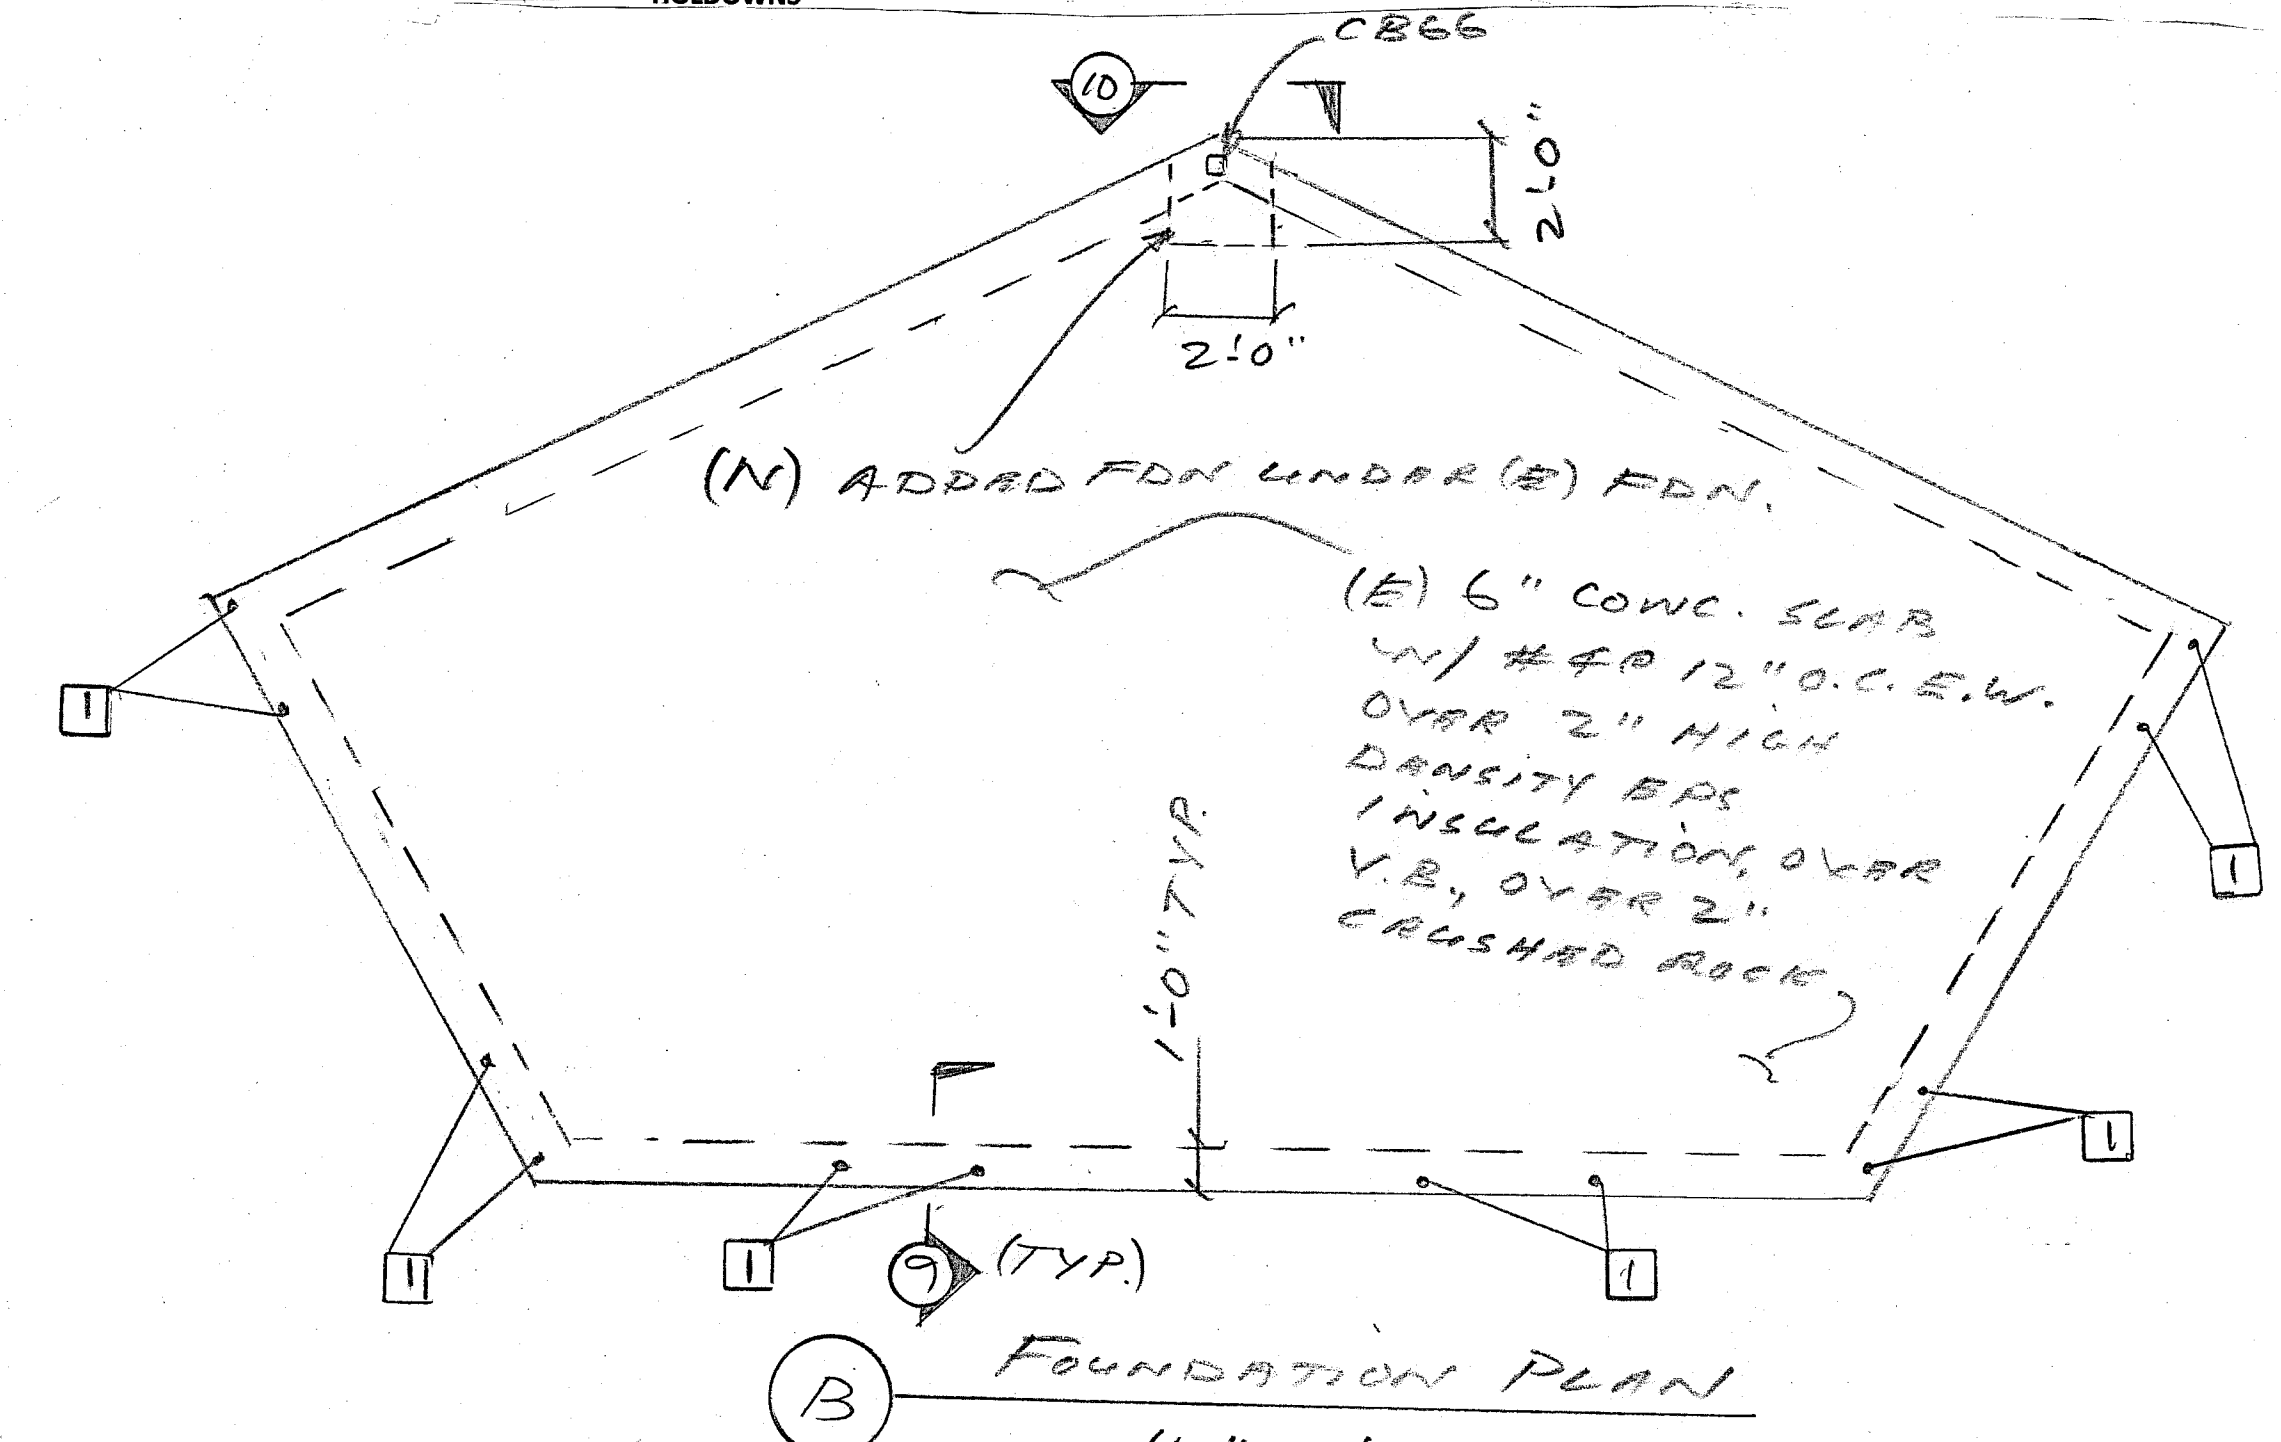 HOLDOWNS
CB66
10
2'-0"
2'-0"
(N) ADDED FDN UNDER (E) FDN.
(E) 6" CONC. SLAB
W/ #4@ 12" O.C. E.W.
OVER 2" HIGH
DENSITY EPS
INSULATION, OVER
V.B., OVER 2"
CRUSHED ROCK
1
1
1'-0" TYP.
1
1
1
1
9 (TYP.)
B FOUNDATION PLAN